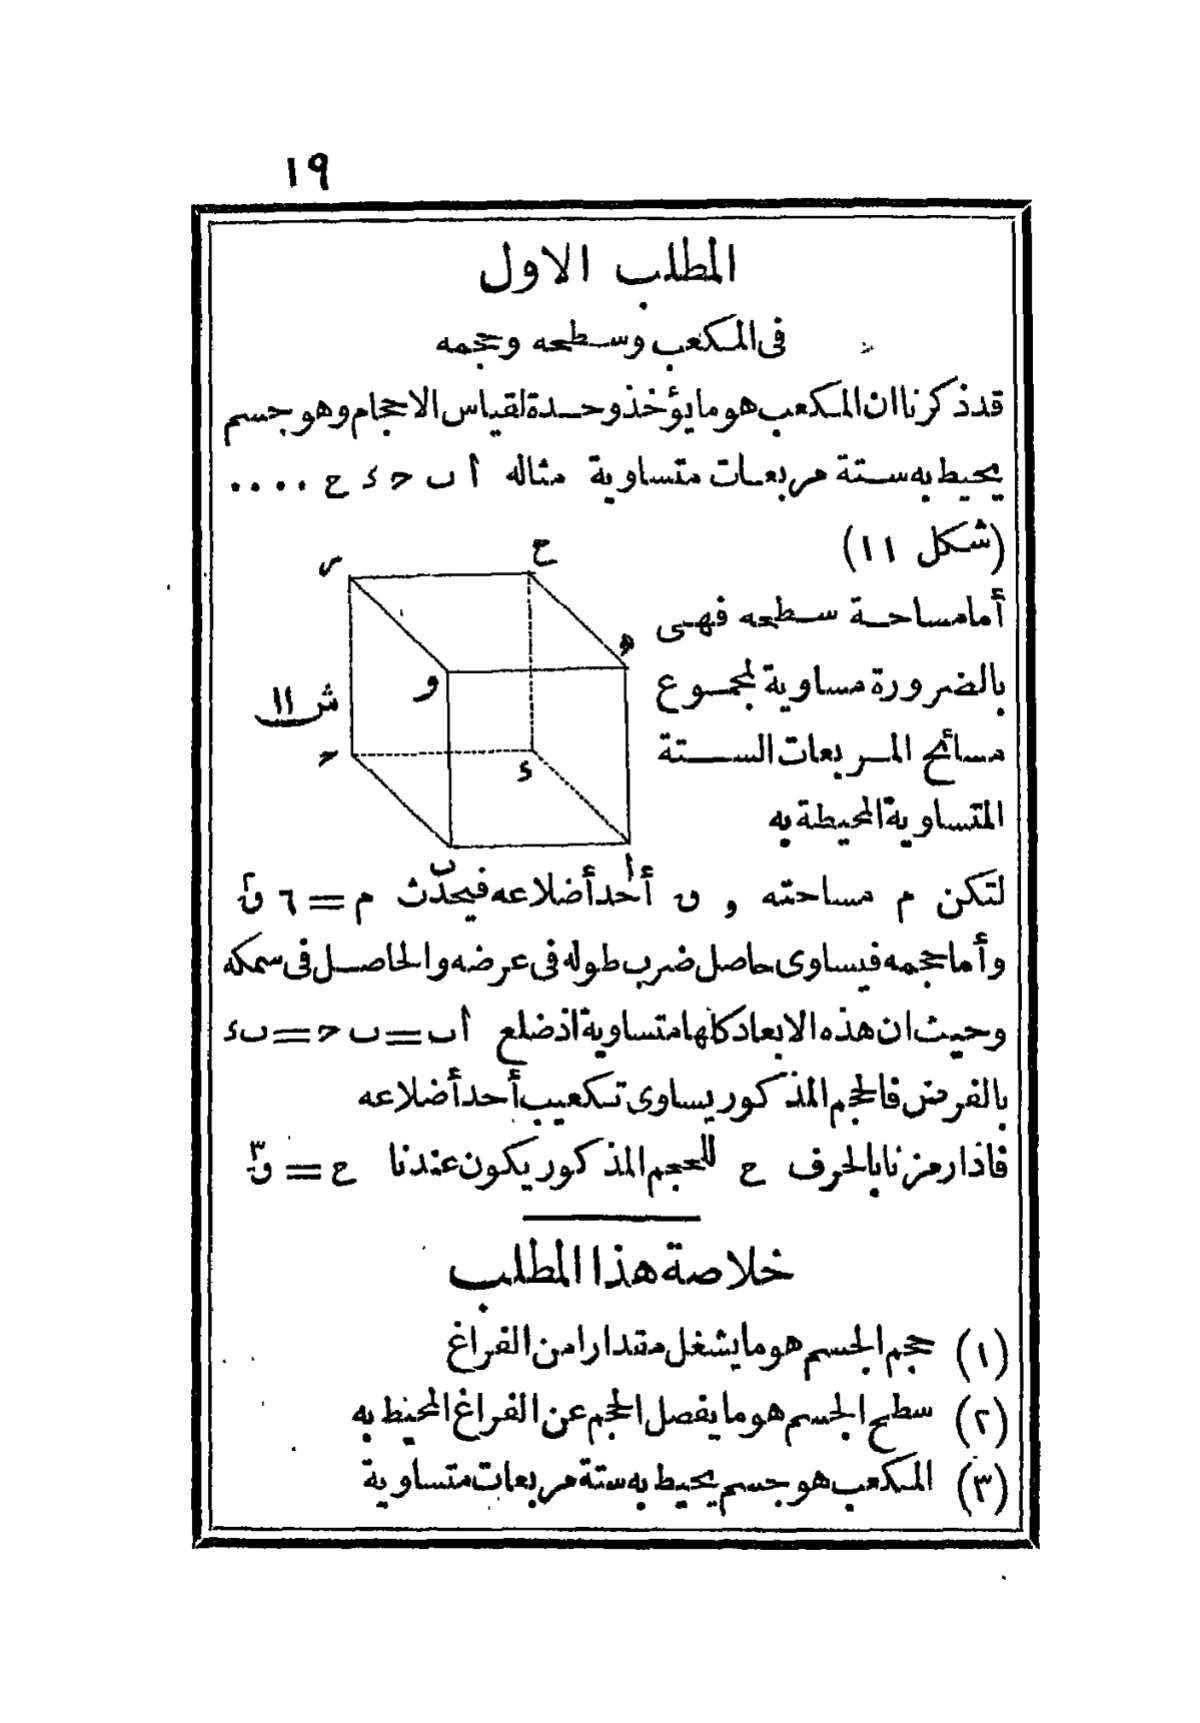 ١٩
المطلب الاول
فى المكعب وسطحه وحجمه
قد ذكرنا ان المكعب هو ما يؤخذ وحدة لقياس الاحجام وهو جسم
يحيط به ستة مربعات متساوية مثاله أ ب ح ء ع ....
(شكل ١١)
أما مساحة سطحه فهى
بالضرورة مساوية لمجموع
مسائح المربعات الستة
المتساوية المحيطة به
ر ع
ه
و
ش ١١
ح
ء
ب أ
لتكن م مساحته و ں أحد أضلاعه فيحدث م = ٦ ں٢
وأما حجمه فيساوى حاصل ضرب طوله فى عرضه والحاصل فى سمكه
وحيث ان هذه الابعاد كلها متساوية اذ ضلع أب = ب ح = ب ء
بالفرض فالحجم المذكور يساوى تكعيب أحد أضلاعه
فاذا رمزنا بالحرف ح للحجم المذكور يكون عندنا ح = ں٣
خلاصة هذا المطلب
(١) حجم الجسم هو ما يشغل مقدارا من الفراغ
(٢) سطح الجسم هو ما يفصل الحجم عن الفراغ المحيط به
(٣) المكعب هو جسم يحيط به ستة مربعات متساوية